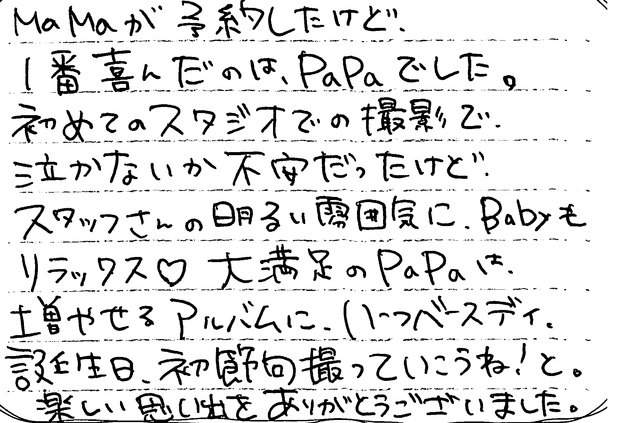 MaMaが予約したけど、
1番喜んだのは、PaPaでした。
初めてのスタジオでの撮影で、
泣かないか不安だったけど、
スタッフさんの明るい雰囲気に、Babyも
リラックス♡ 大満足のPaPaは、
増やせるアルバムに、ハーフバースディ、
誕生日、初節句撮っていこうね!と。
楽しい思い出をありがとうございました。